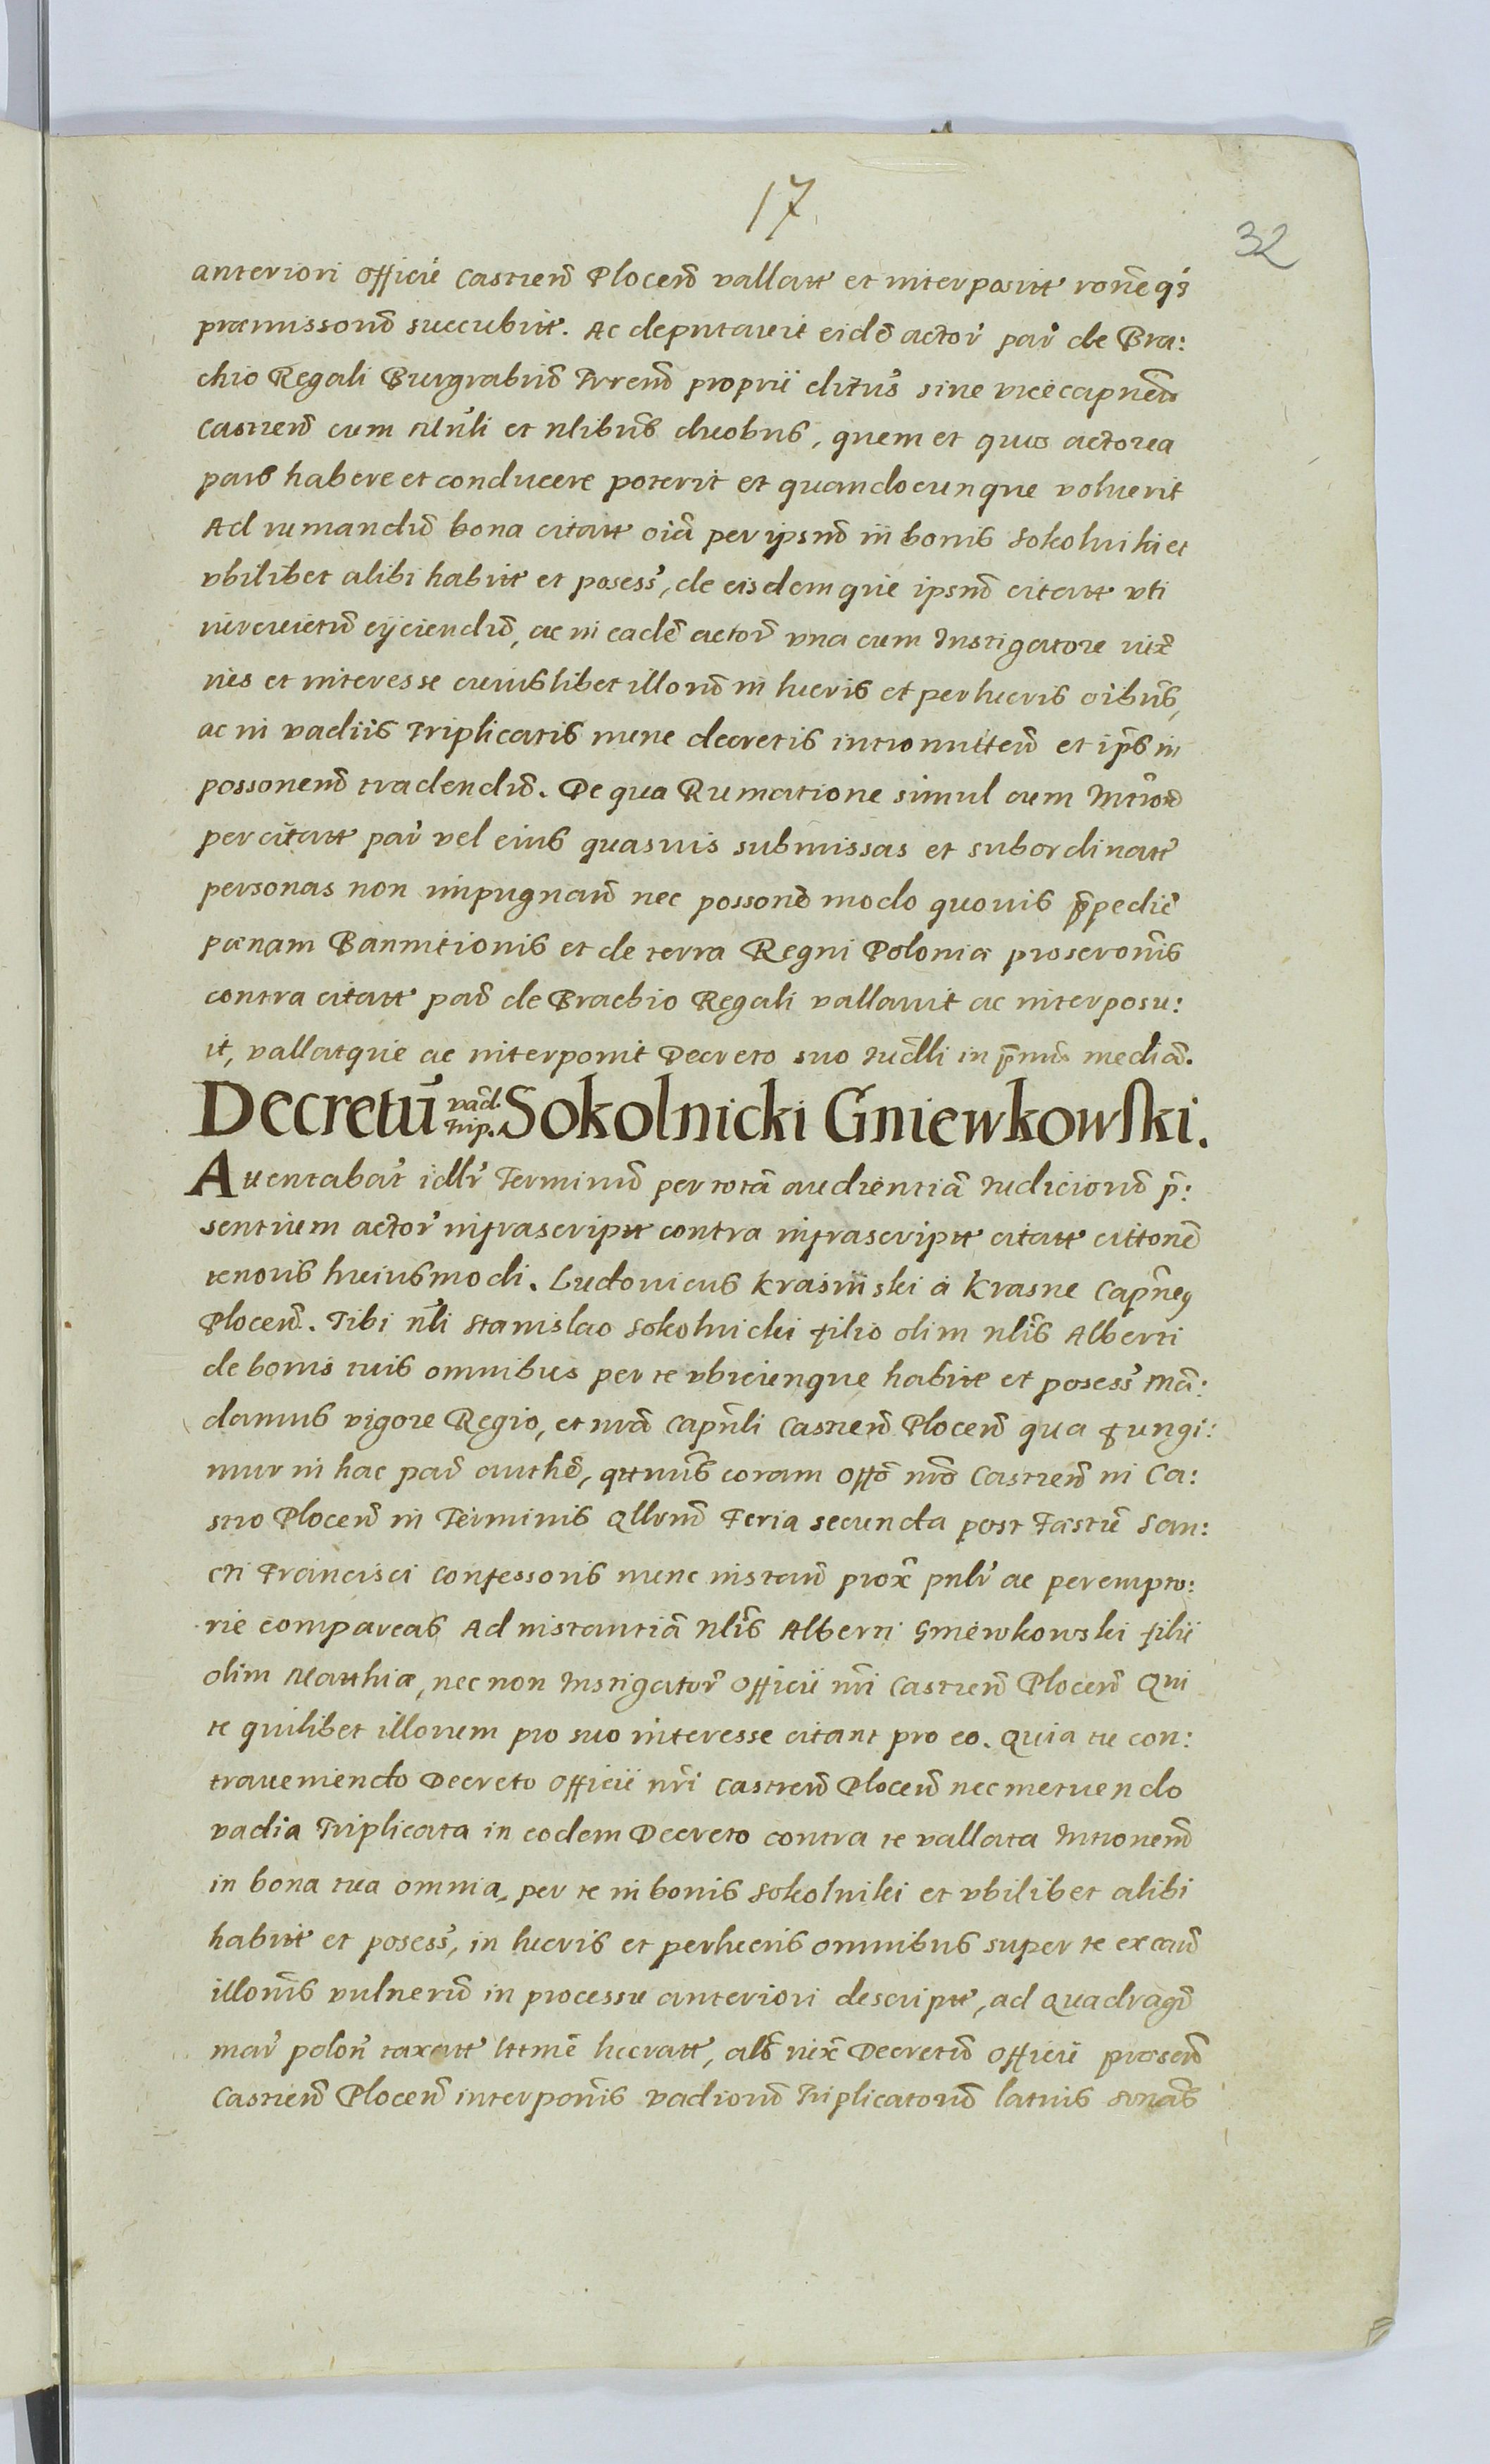 17
32
anteriori officii Castreñ Ploceñ vallatt et interpositt roñe qš
præmissorũ succubuit. Ac deputauit eidẽ actor̃ par̃ de Bra:
chio Regali Burgrabiũ Trreñ proprii clitus̃ sine vicecapneũ
Castreñ cum ntlı̃ et nlibus̃ duobus, quem et quos actorea
pars habere et conducere poterit et quandocunque voluerit
Ad rumandũ bona citatt oı̃a per ipsũ in bonis Sokolniki et
vbilibet alibi habitt et posess̃, de eisdemque ipsũ citatt vti
iureuictũ eijciendũ, ac in eadẽ actor̃ vna cum Instigatore iux̃
ius et interesse cuiuslibet illorũ in lucris et perlucris oı̃bus̃,
ac in vadiis triplicatis nunc decretis intromitteñ et ip̃s in
possoneũ tradendũ. De qua Rumatione simul cum Intrõe
per citatt par̃ vel eius quasuis submissas et subordinatt
personas non impugnañ nec possonẽ modo quouis p̃pedieñ
pœnam Bannitionis et de terra Regni Poloniæ proscrõnis
contra citatt par̃ de Brachio Regali vallauit ac interposu:
it, vallatque ac interponit Decreto suo iudllı̃ in p̃mis mediã.
Decretũ vad. trip. Sokolnicki Gniewkowski.
Auentabat̃ idlr̃ Terminũ per totã audientiã Iudiciorũ p̃:
sentium actor̃ infrascriptt contra infrascriptt citatt cittonẽ
tenoris huiusmodi. Ludouicus Krasiński à Krasne Capñeus
Ploceñ. Tibi nlı̃ Stanislao Sokolnicki filio olim nlis̃ Alberti
de bonis tuis omnibus per te vbicunque habitt et posess̃ mã:
damus vigore Regio, et nrã Capñli Castreñ Ploceñ qua fungi:
mur in hac par̃ authẽ, qttnus̃ coram offõ nrõ Castreñ in Ca:
stro Ploceñ in Terminis qllrũ Feria secunda post Fastũ San:
cti Francisci Confessoris nunc instañ prox̃ pnlr̃ ac perempto:
rie compareas Ad instantiã Nlis̃ Alberti Gniewkowski filii
olim Matthiæ, nec non Instigator̃ Officii nrĩ Castreñ Ploceñ Qui
te quilibet illorum pro suo interesse citant pro eo. Quia tu con:
traueniendo Decreto Officii nrĩ Castreñ Ploceñ nec metuendo
vadia Triplicata in eodem Decreto contra te vallata Intronem̃
in bona tua omnia, per te in bonis Sokolniki et vbilibet alibi
habitt et posess̃, in lucris et perlucris omnibus super te ex cau͂
illonis̃ vulnerũ in processu anteriori descriptt, ad Quadragı̃
mar̃ poloñ taxatt lttmẽ lucratt, als̃ iux̃ Decretũ Officii præseñ
Castreñ Ploceñ interponis̃ vadiorũ Triplicatorũ latius sonans̃